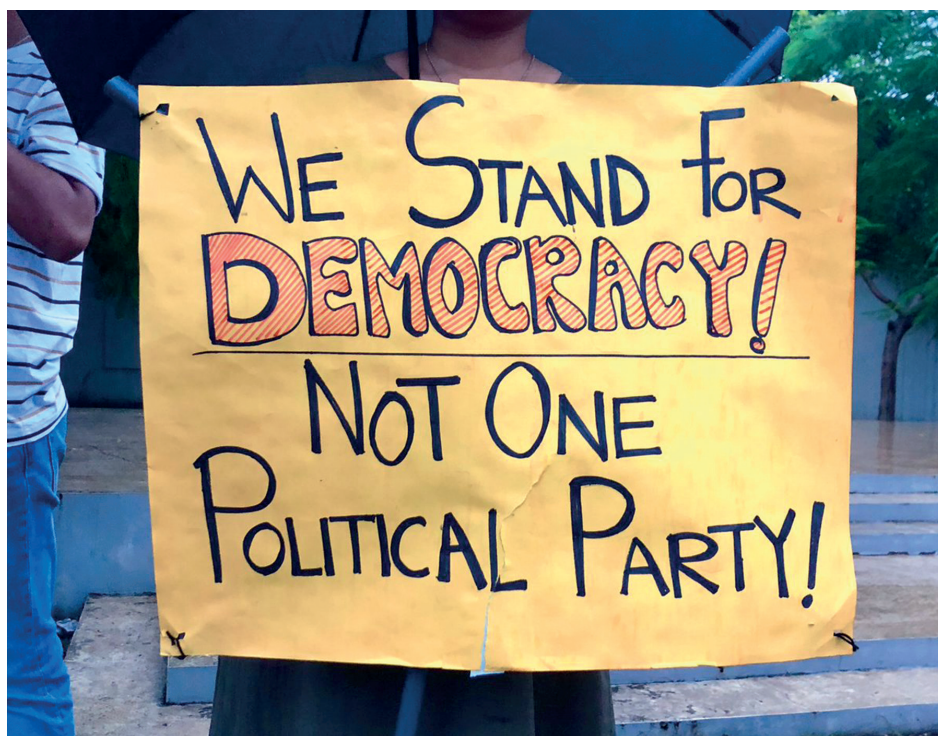 We Stand For
Democracy!
Not One
Political Party!